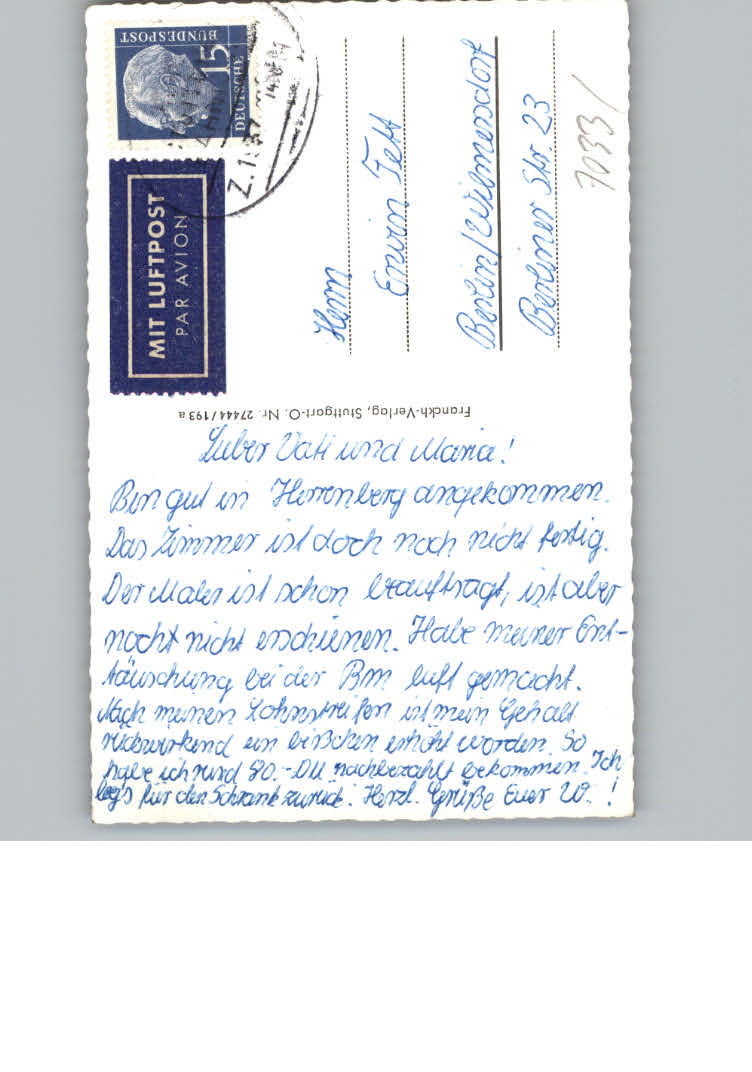 DEUTSCHE
BUNDESPOST
15
Z.1
MIT LUFTPOST
PAR AVION
Herrn
Erwin Fett
Berlin/Wilmersdorf
Berliner Str. 23
7033/
Franckh-Verlag, Stuttgart-O. Nr. 27444/193 a
Lieber Vati und Maria!
Bin gut in Herrenberg angekommen.
Das Zimmer ist doch noch nicht fertig.
Der Maler ist schon beauftragt, ist aber
nocht nicht erschienen. Habe meiner Ent-
täuschung bei der Bm luft gemacht.
Nach meinen Lohnstreifen ist mein Gehalt
rückwirkend ein bißchen erhöht worden. So
habe ich rund 90.- DM nachbezahlt bekommen. Ich
leg's für den Schrank zurück. Herzl. Grüße Euer W.!